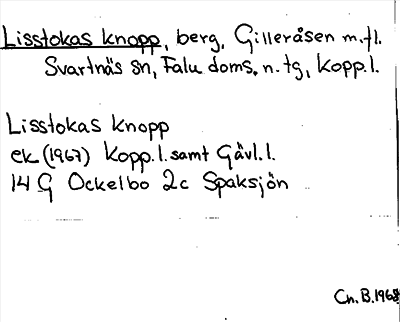 Lisstokas knopp, berg, Gilleråsen m.fl.
Svartnäs sn, Falu doms. n. tg, Kopp.l.
Lisstokas knopp
ek (1967) Kopp.l. samt Gävl.l.
14 G Ockelbo 2c Spaksjön
Ch. B. 1968